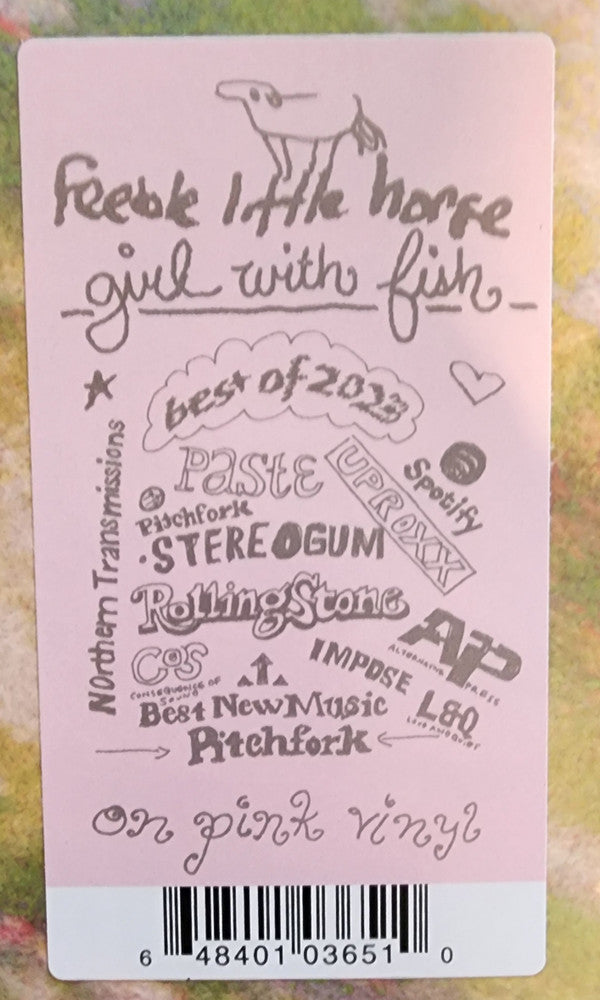 feeble little horse
girl with fish
best of 2023
Paste
UPROXX
Spotify
Northern Transmissions
Pitchfork
STEREOGUM
RollingStone
AP
ALTERNATIVE PRESS
CoS
CONSEQUENCE OF
SOUND
IMPOSE
L&Q
LOUD AND QUIET
Best New Music
Pitchfork
on pink vinyl
6 48401 03651 0